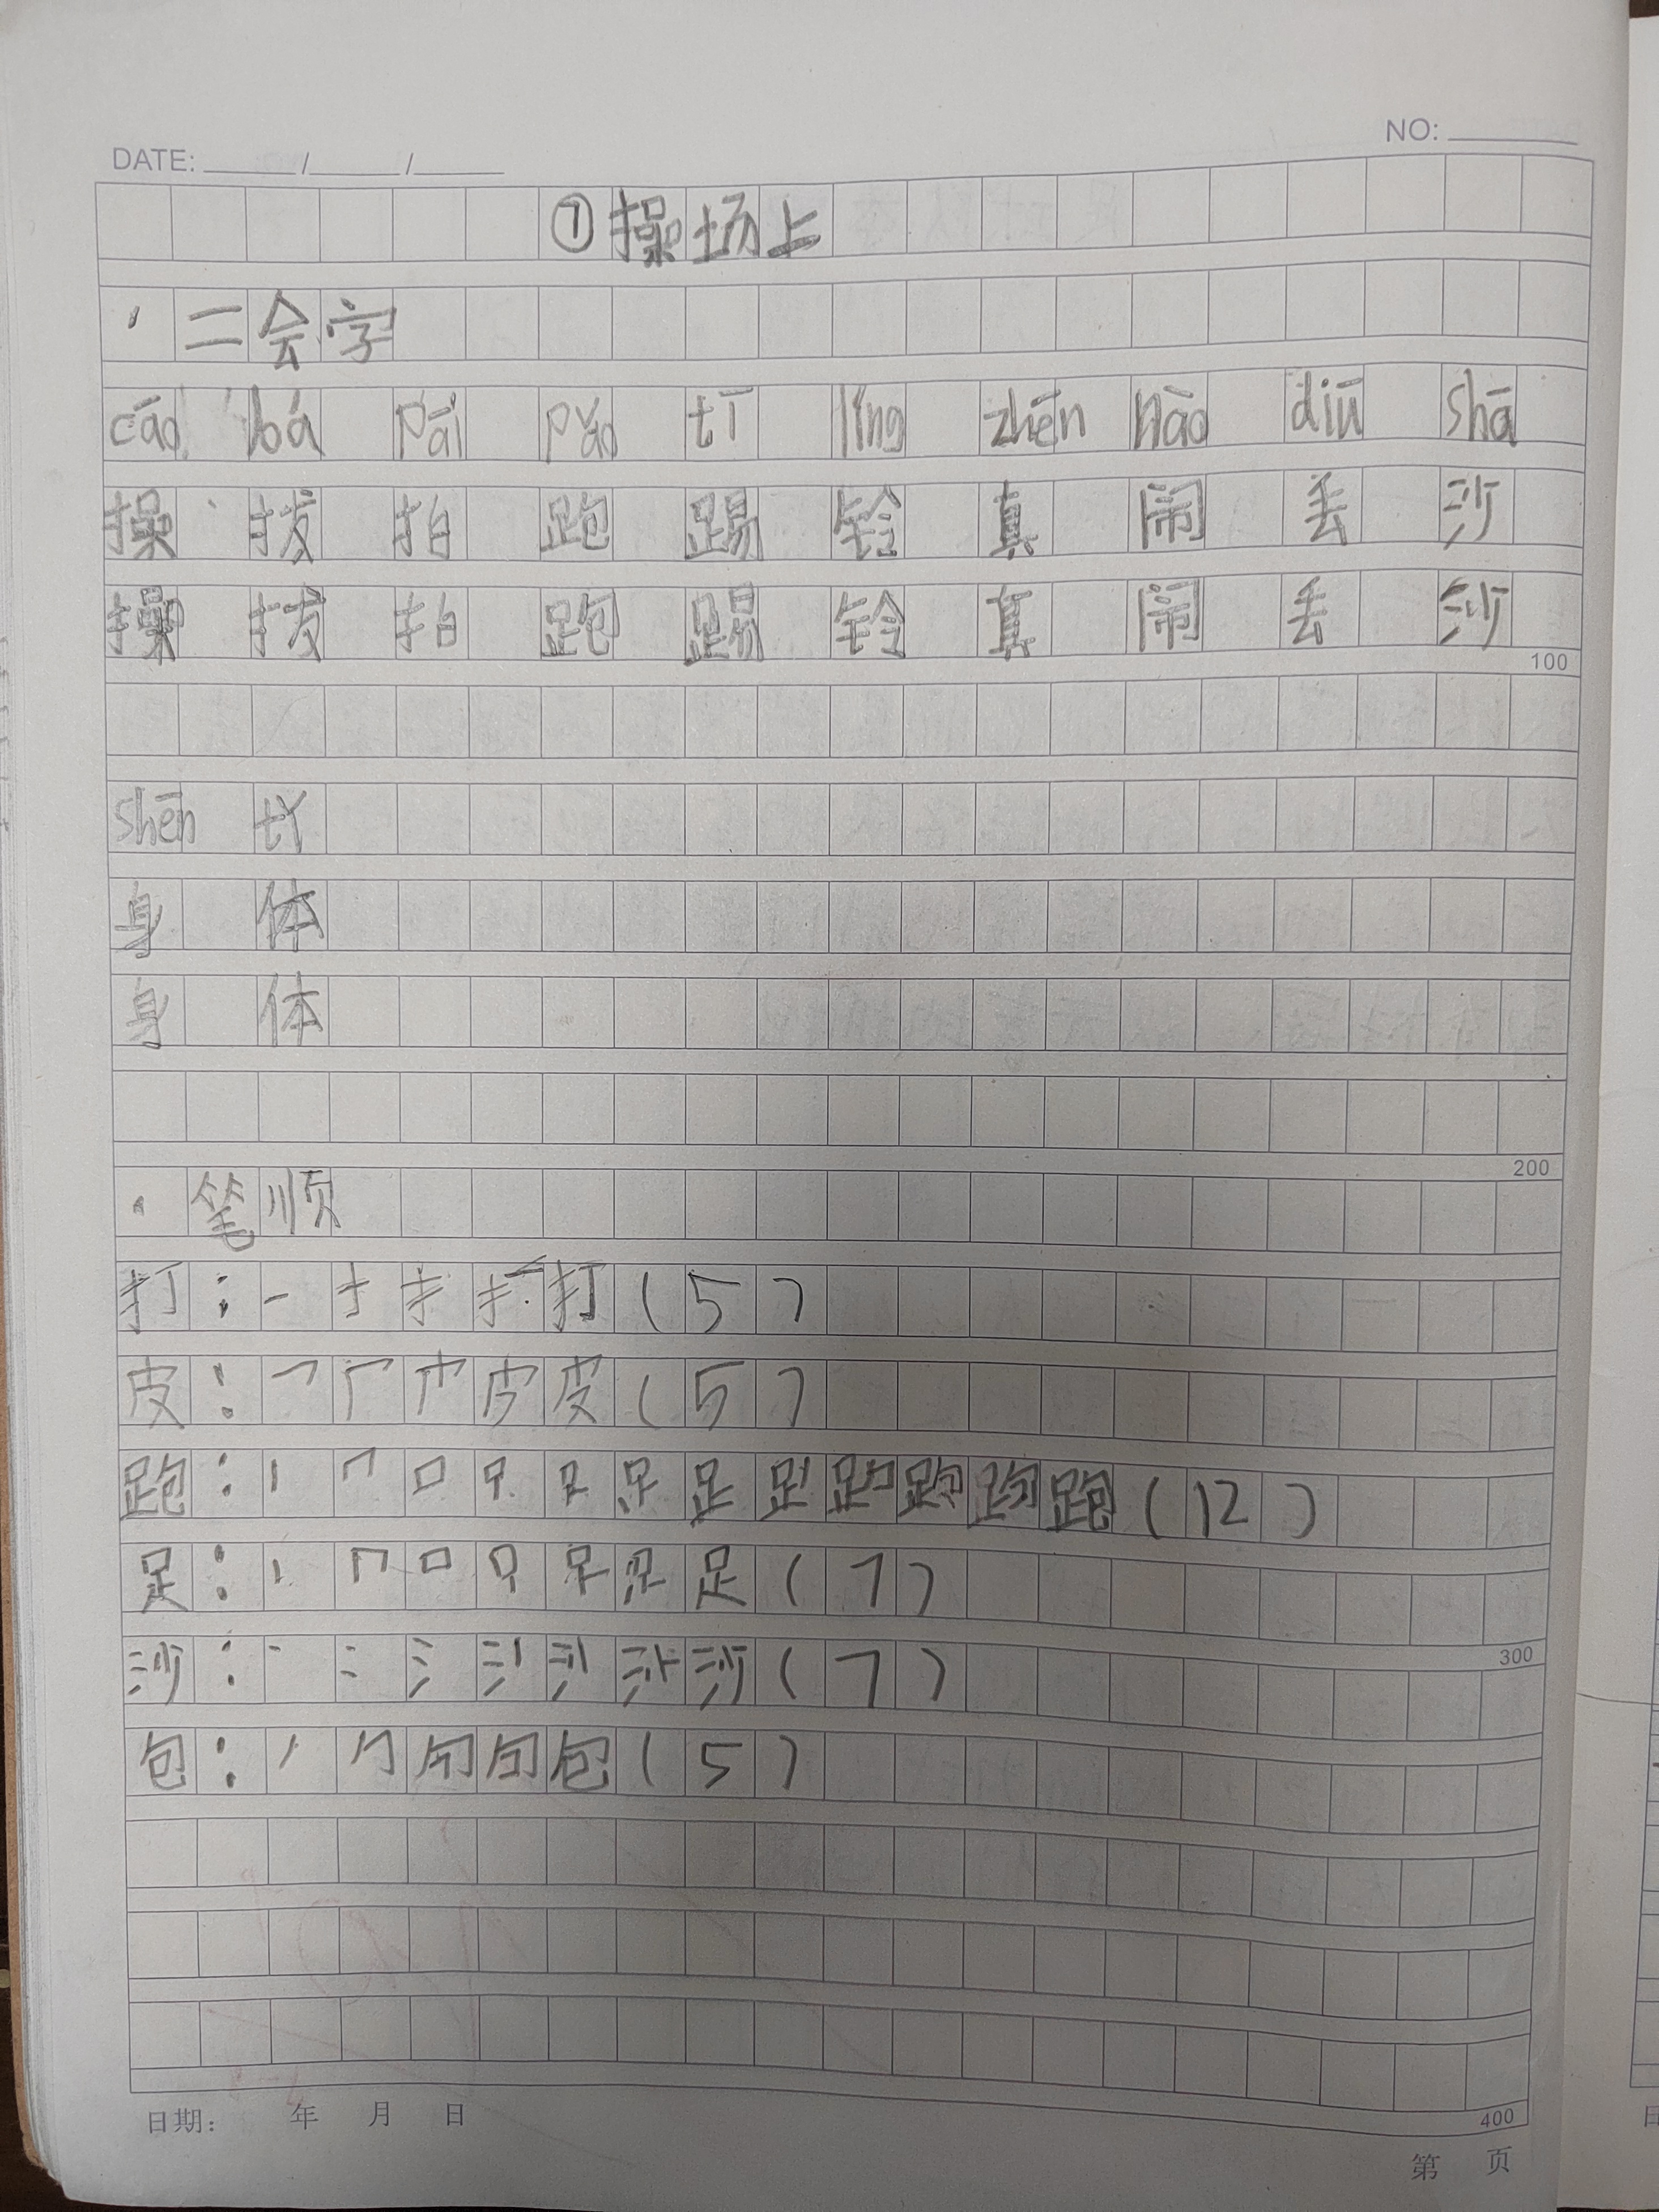 DATE: / /
NO:
⑦操场上
·二会字
cāo bá pāi pǎo tī líng zhēn nào diū shā
操 拔 拍 跑 踢 铃 真 闹 丢 沙
操 拔 拍 跑 踢 铃 真 闹 丢 沙
100
shēn tǐ
身 体
身 体
200
·笔顺
打: 一 扌 打(5)
皮: 皮(5)
跑: 丨 口 足 跑(12)
足: 丨 口 足(7)
沙: 丶 冫 氵 沙(7)
300
包: 丿 勹 包(5)
400
日期: 年 月 日
第 页